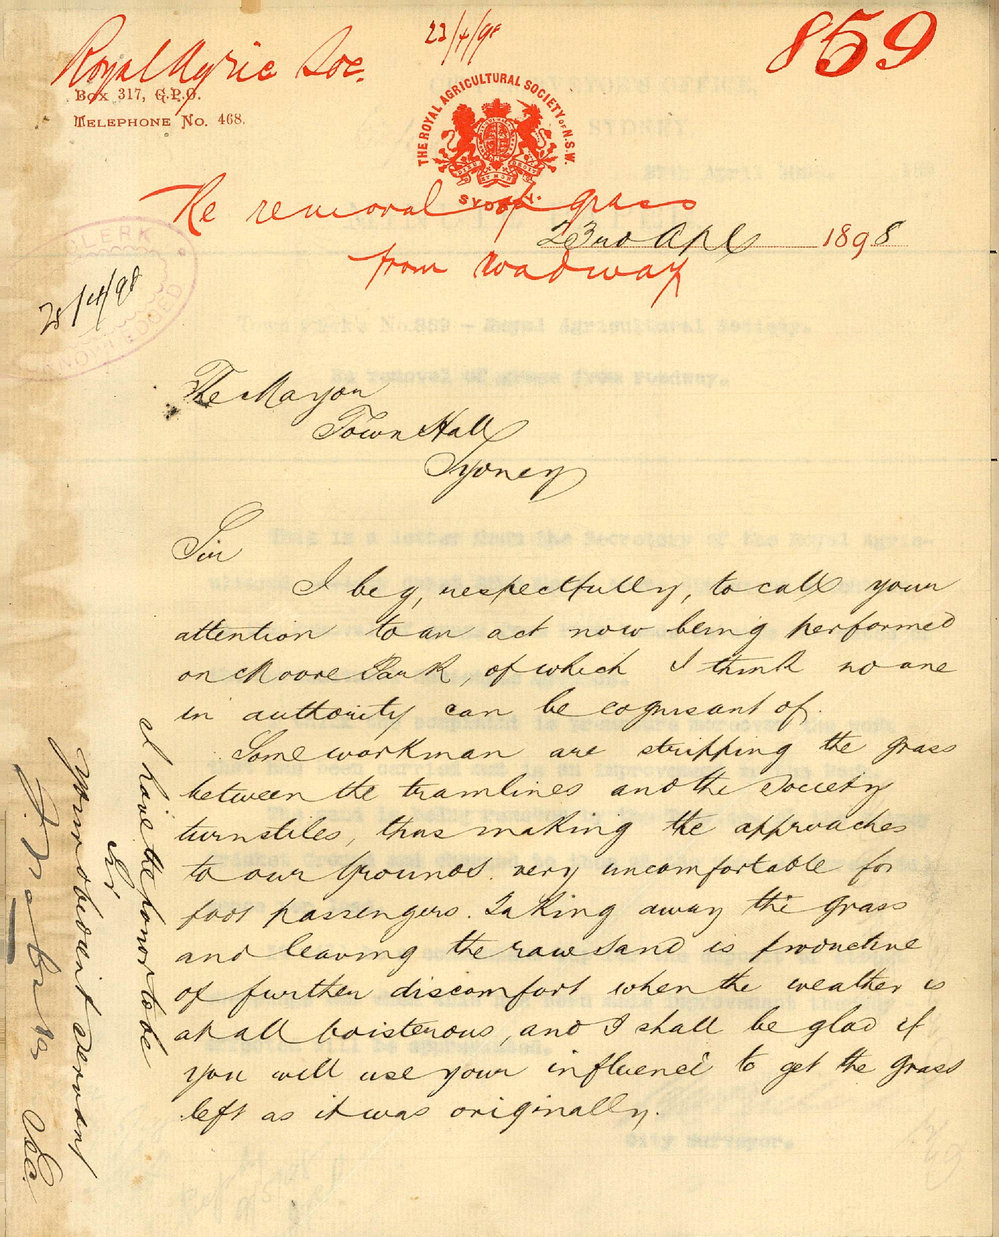 Royal Agric Soc.
23/4/98
859
Box 317, G.P.O.
Telephone No. 468.
THE ROYAL AGRICULTURAL SOCIETY OF N.S.W.
SYDNEY.
Re removal of grass
23rd Apl 1898
from roadway
CLERK
28/4/98
The Mayor
Town Hall
Sydney
Sir
I beg, respectfully, to call your
attention to an act now being performed
on Moore Park, of which I think no one
in authority can be cognisant of.
Some workman are stripping the grass
between the tramlines and the Society
turnstiles, thus making the approaches
to our Grounds very uncomfortable for
foot passengers. Taking away the grass
and leaving the raw sand is productive
of further discomfort when the weather is
at all boisterous, and I shall be glad if
you will use your influence to get the grass
left as it was originally.
I have the honor to be
Sir
Your obedient servant
F. Webster
Sec.
Town Clerk's No. 859 - Royal Agricultural Society.
Re removal of grass from roadway.
City Surveyor.